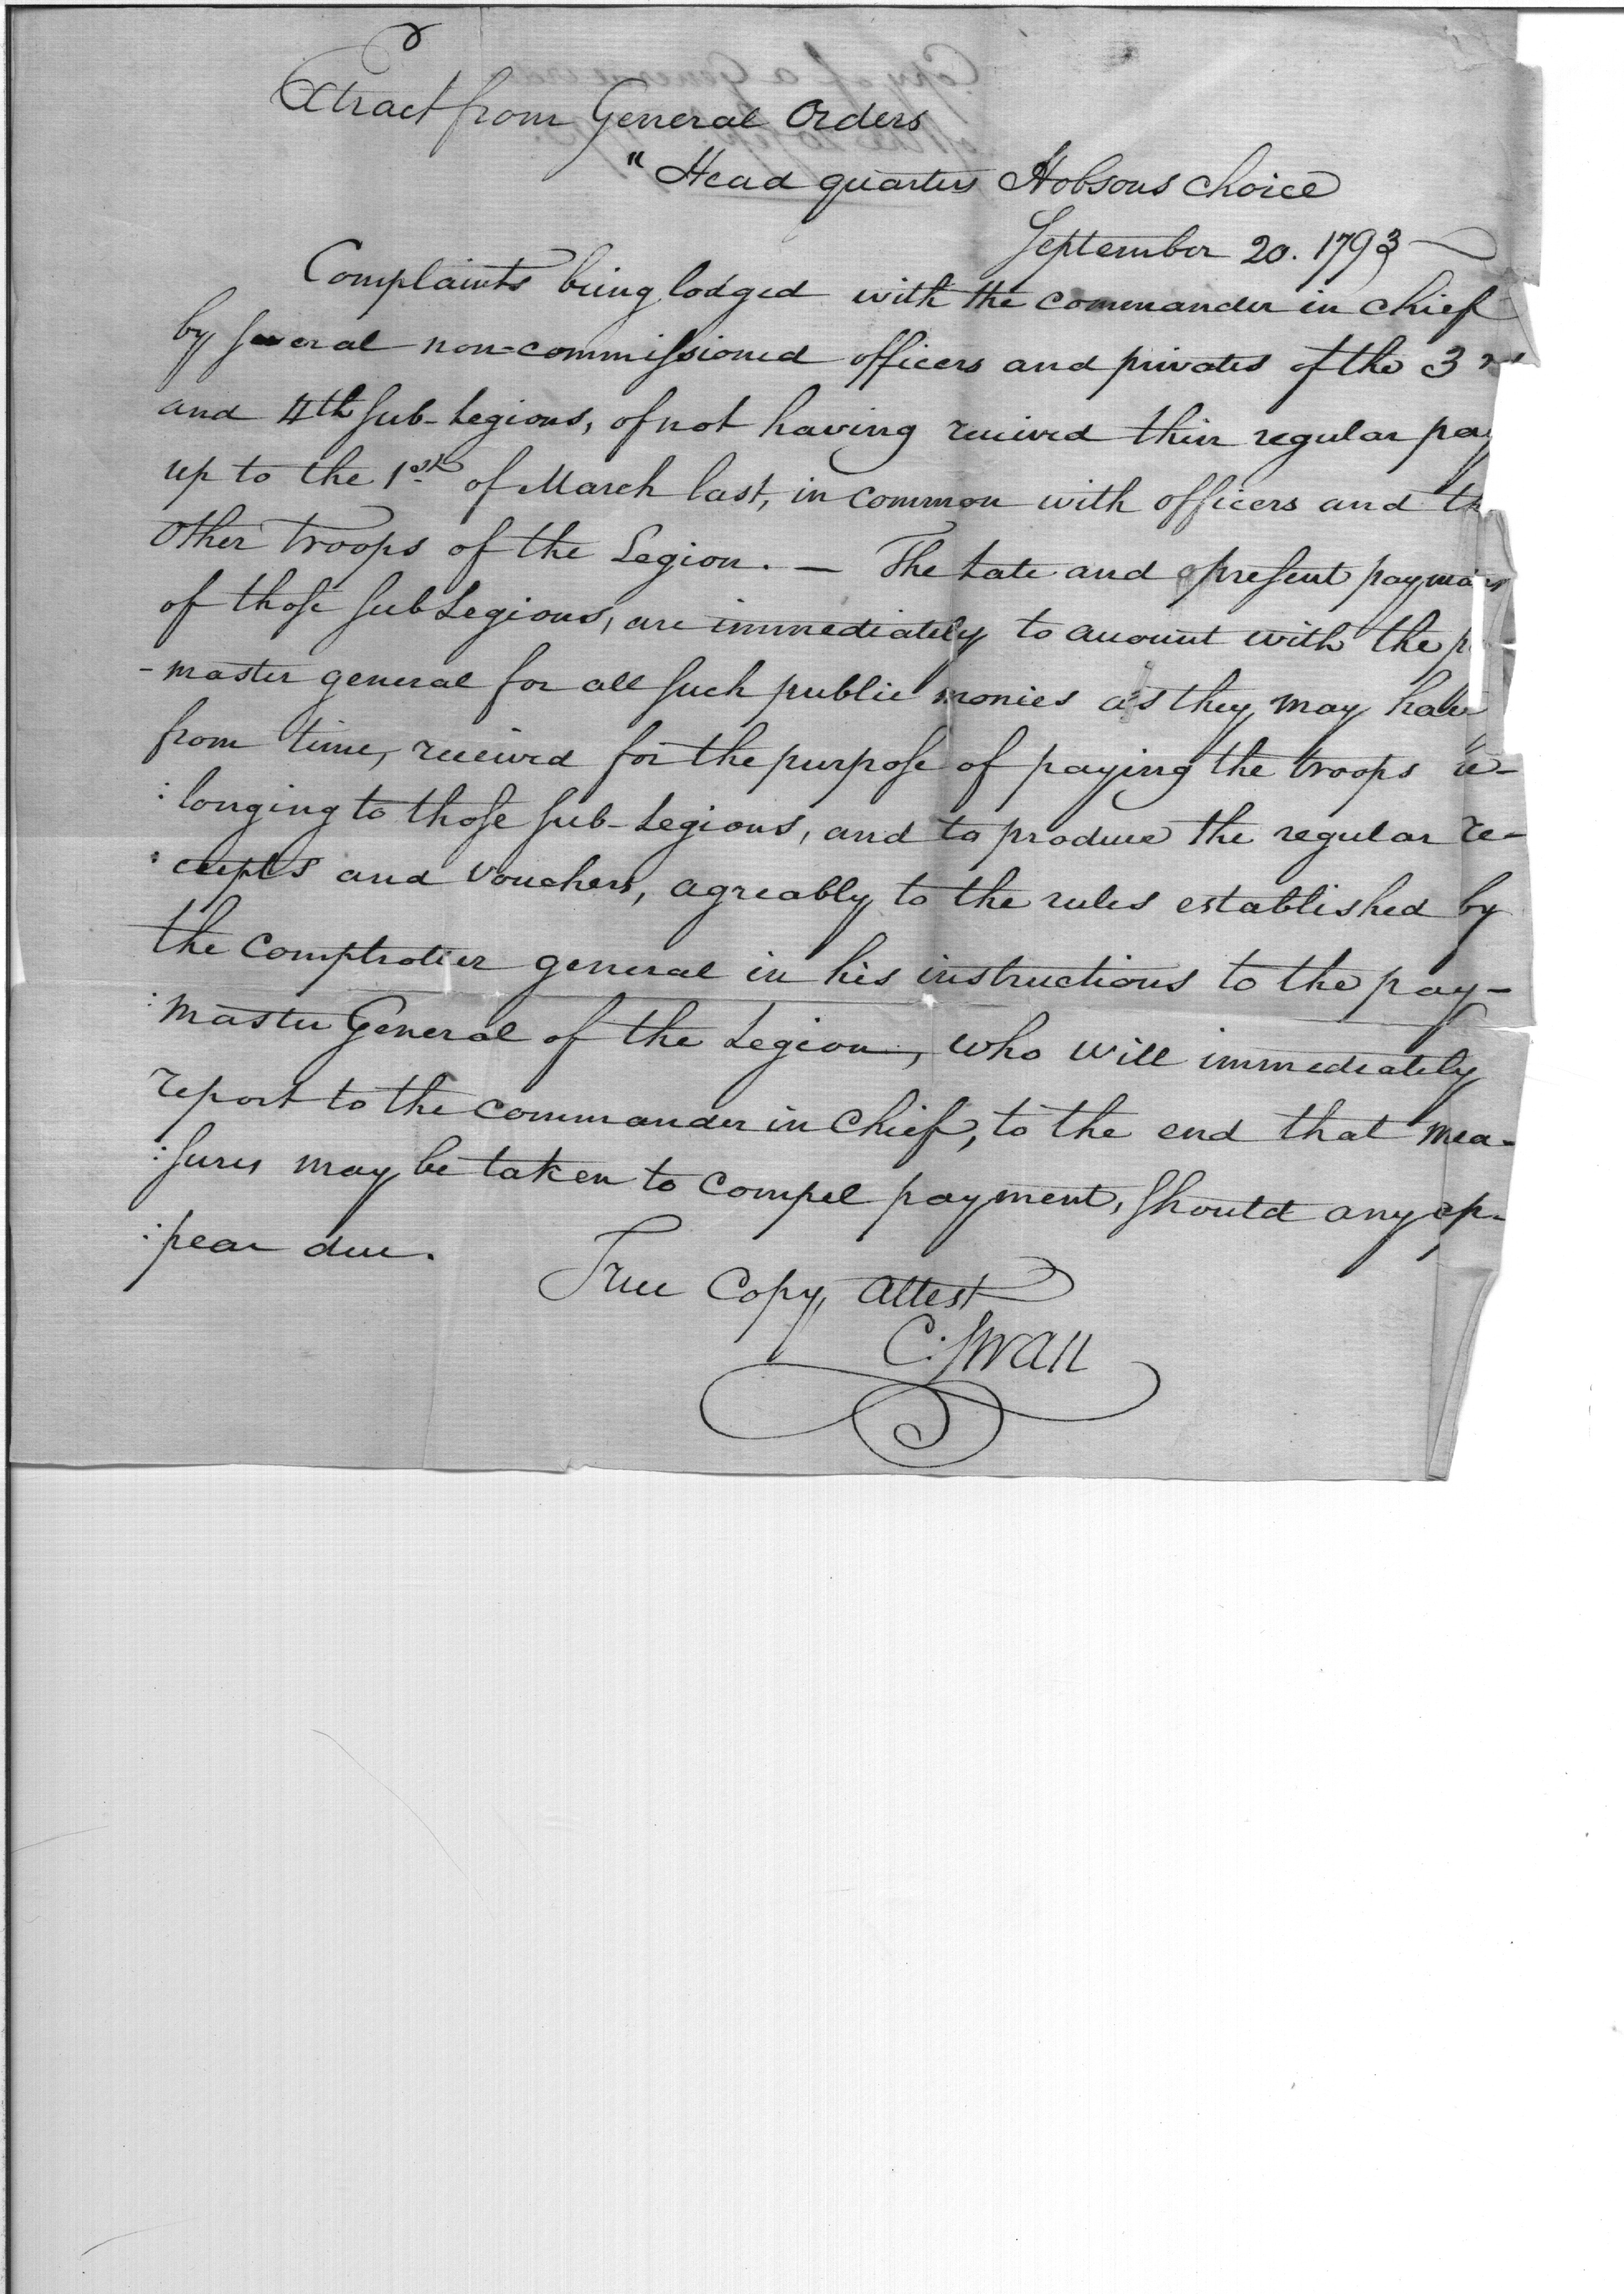 Extract from General Orders
"Head quarters Hobsons choice
September 20. 1793
Complaints being lodged with the commander in chief
by several non-commissioned officers and privates of the 3rd
and 4th sub-Legions, of not having received their regular pay
up to the 1st of March last, in common with officers and th
other troops of the Legion. — The late and present paymas
of those subLegions, are immediately to account with the p
-master general for all such public monies as they may have
from time, received for the purpose of paying the troops be-
:longing to those sub-Legions, and to produce the regular re-
:ceipts and vouchers, agreably to the rules established by
the comptroller general in his instructions to the pay-
:master General of the Legion, who will immediately
report to the commander in chief, to the end that mea-
:sures may be taken to compel payment, should any ap-
:pear due.
True Copy, attest
C. Swan